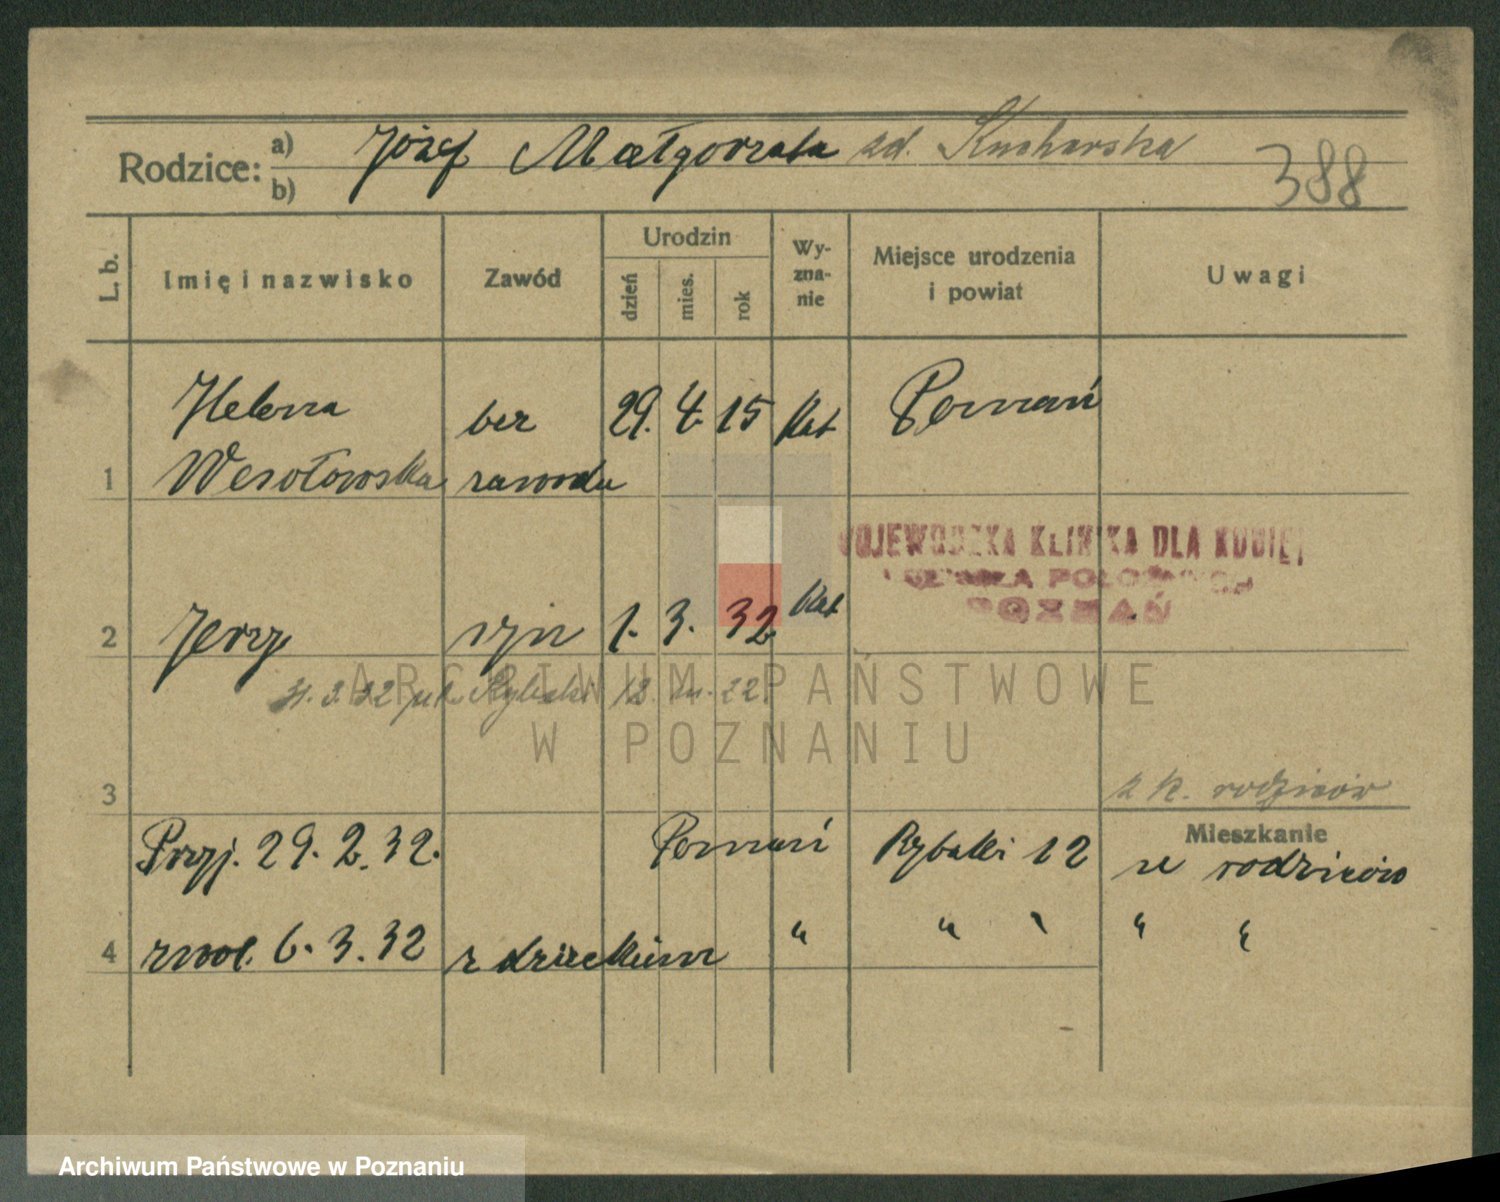 Rodzice: a) b)
Józef Małgorzata zd. Kucharska
388
L. b.
Imię i nazwisko
Zawód
Urodzin
dzień mies. rok
Wy-
zna-
nie
Miejsce urodzenia
i powiat
Uwagi
Helena bez 29. 4. 15 Kat Poznań
1 Wesołowska zawodu
WOJEWÓDZKA KLINIKA DLA KOBIET
I SZKOŁA POŁOŻNYCH
POZNAŃ
2 Jerzy syn 1. 3. 32 Kat
31. 3. 32 Rybaki 12 22.
ARCHIWUM PAŃSTWOWE
W POZNANIU
3
rodziców
Mieszkanie
Przyj. 29. 2. 32. Poznań Rybaki 12 u rodziców
4 zwol. 6. 3. 32 z dzieckiem " " " " "
Archiwum Państwowe w Poznaniu